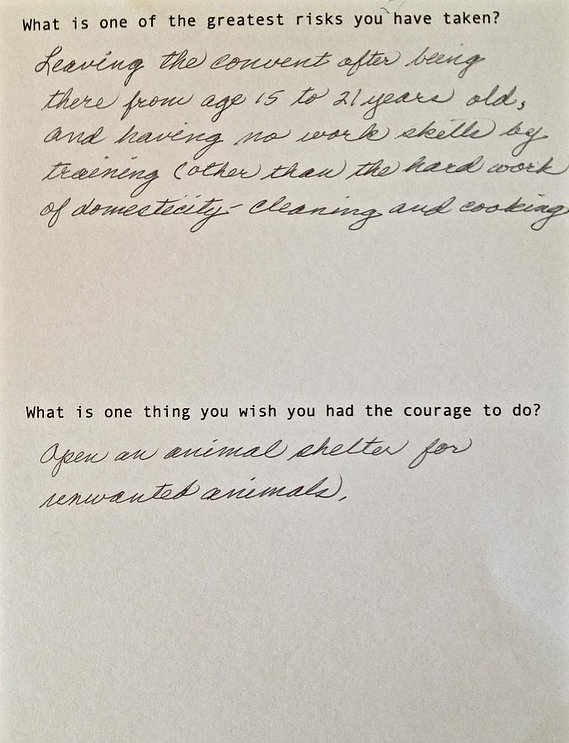 What is one of the greatest risks you have taken?
Leaving the convent after being
there from age 15 to 21 years old,
and having no work skills by
training (other than the hard work
of domesticity - cleaning and cooking
What is one thing you wish you had the courage to do?
Open an animal shelter for
unwanted animals.